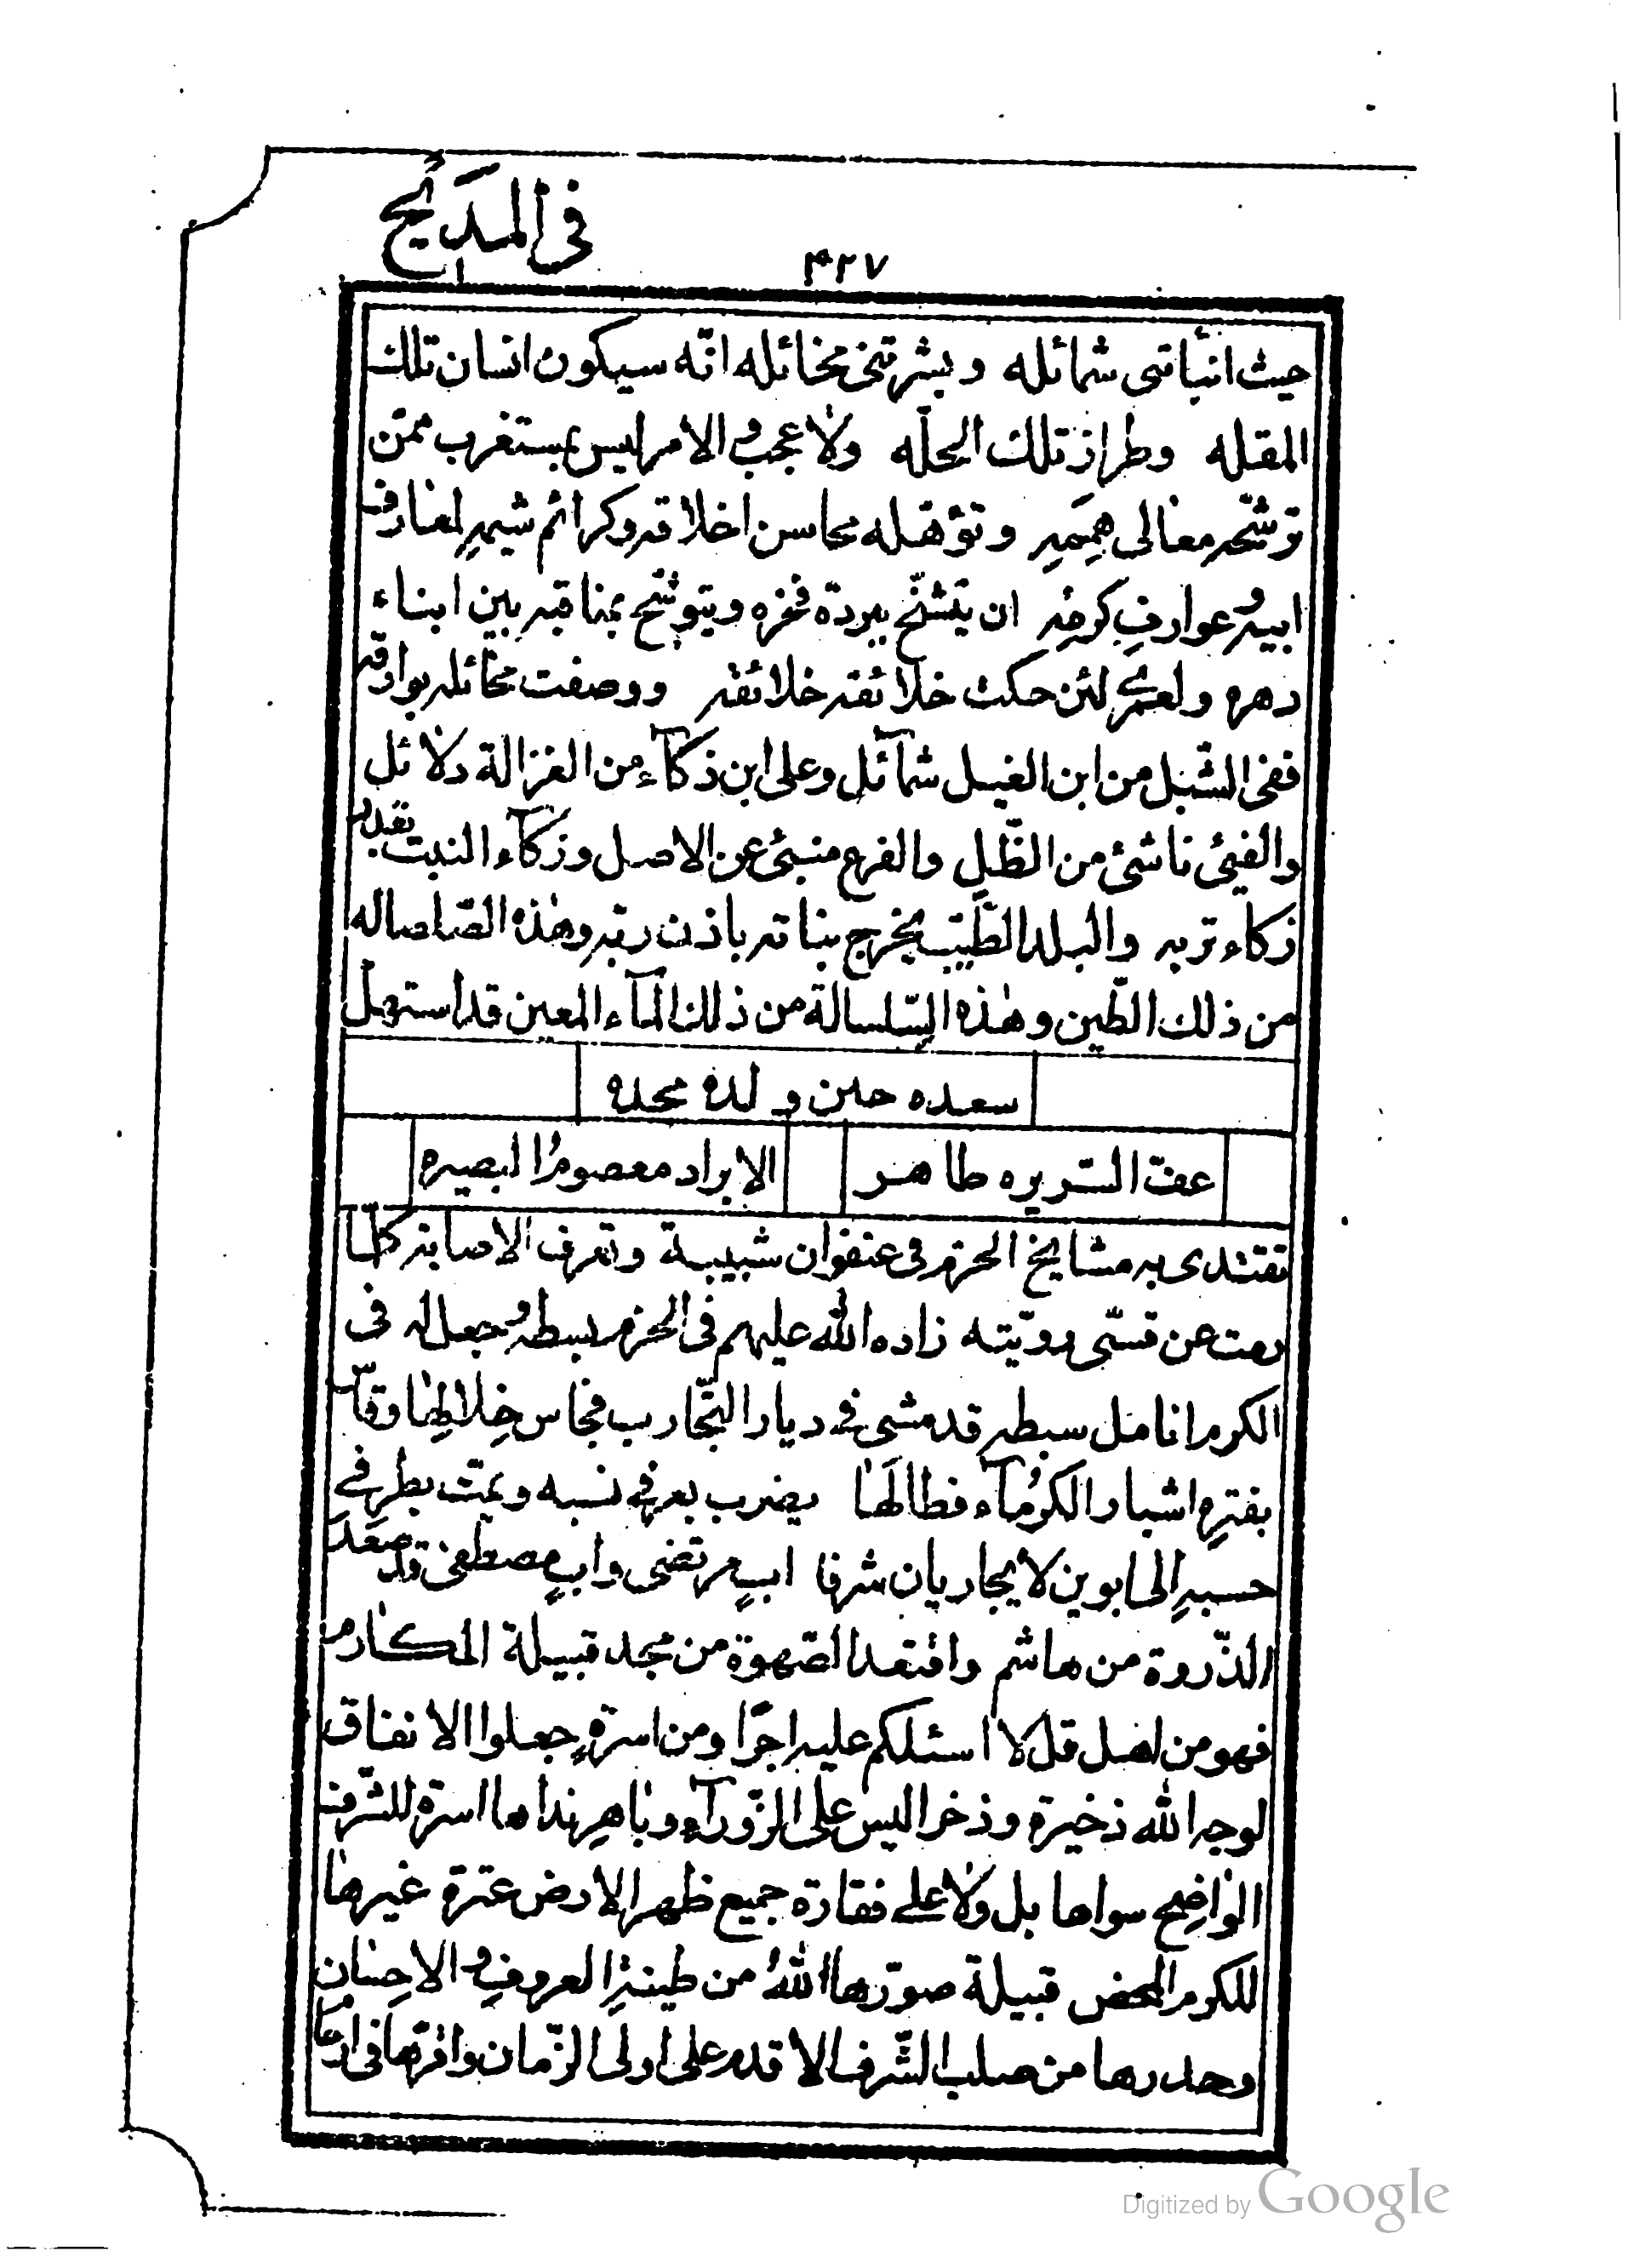 فى المديح
٤٢٧
حيث انبأتنى شمائله وبشرتنى مخائله انّه سيكون انسان تلك
المقله وطراز تلك الحلّه ولا عجب والامر ليس بمستغرب ممّن
ترشّحه معالى هممه وتؤهّله محاسن اخلاقه وكرائم شيمه لمعارف
ابيه وعوارف كرمه ان يتشّح ببردة فخره ويتوشّح بمناقبه بين ابناء
دهره ولعمرى لئن حكت خلائقه خلائقه ووصفت مخائله بوارقه
ففى الشّبل من ابن الغيل شمآئل وعلى ابن ذكآء من الغزالة دلائل
والفيئ ناشئ من الظّل والفرع منبئ عن الاصل وزكآء النبت بقدر
زكاء تربه والبلد الطّيّب يخرج بناته باذن ربّه وهذه الصّلصاله
من ذلك الطّين وهذه السّلسالة من ذلك المآء المعين قد استهل
سعده حين ولده مجده
عفّ السّريره طاهر
الابراد معصوم البصيره
تقتدى به مشايخ الحزم فى عنفوان شبيبة وتعرف الاصابة كلّما
رمت عن قسّى رويّته زاده الله عليهم فى الحزم بسطة وجعل له فى
الكرم انامل سبطه قد مشى فى ديار التّجارب فجاس خلالها وقاس
بفتره اشبار الكرمآء فطالها يضرب بعرق فى نسبه ويمتّ بطرف فى
حسبه الى ابوين لا يجاريان شرفا اب مرتضى واب مصطفى قد صعد
الذّروة من هاشم واقتعد الصّهوة من مجد قبيلة المكارم
فهو من اهل قل لا اسئلكم عليه اجرًا ومن اسرة جعلوا الانفاق
لوجه الله ذخيرة وذخرا ليس على الزّورآء وباهر نداها اسرة للشّرف
الواضح سواها بل ولا على فقارة جميع ظهر الارض عترة غيرها
للكرم المحض قبيلة صوّرها الله من طينة المعروف والاحسان
وحدرها من صلب الشّرف الاقدم على اولى الزّمان واقرّها فى